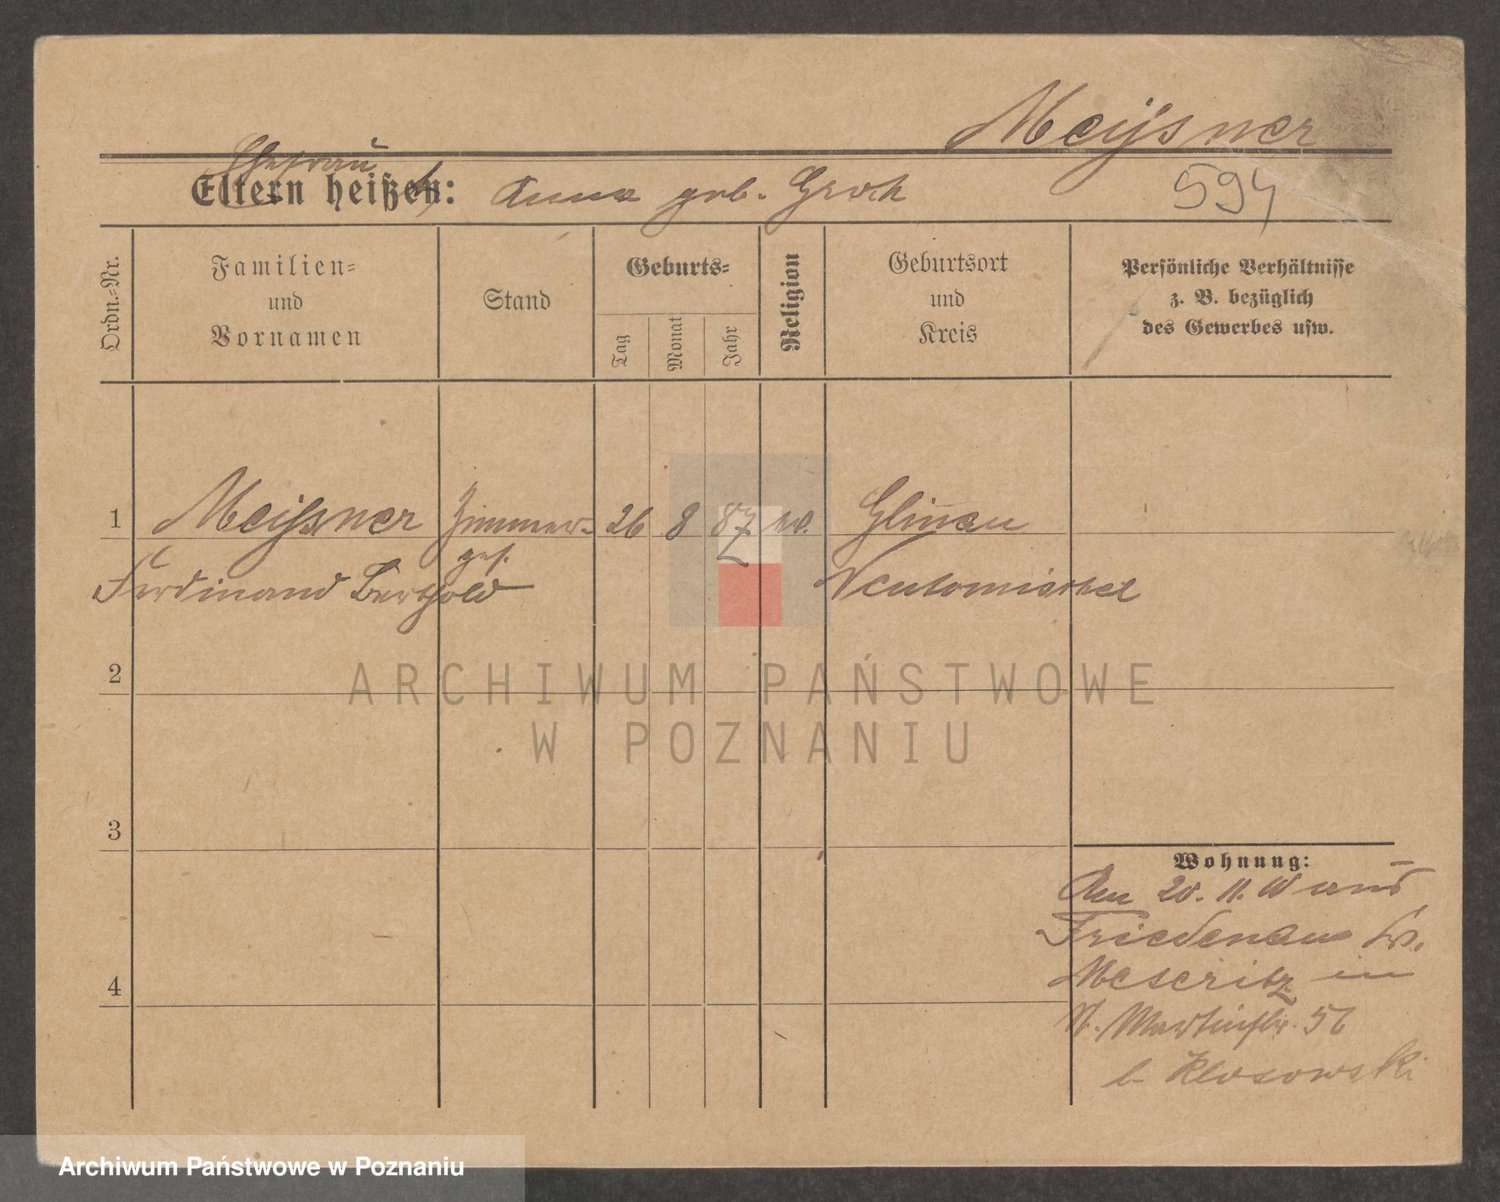 Meißner
Ehefrau
Eltern heißen: Anna geb. Groch
594
Ordn.-Nr.
Familien-
und
Vornamen
Stand
Geburts-
Tag
Monat
Jahr
Religion
Geburtsort
und
Kreis
Persönliche Verhältnisse
z. B. bezüglich
des Gewerbes usw.
1 Meißner Zimmer- 26 8 87 ev. Glinau
ges.
Ferdinand Berthold Neutomischel
2
ARCHIWUM PAŃSTWOWE
W POZNANIU
3
Wohnung:
Am 20. 11. 10 aus
Friedenau Kr.
4
Meseritz in
St. Martinstr. 56
b. Klosowski
Archiwum Państwowe w Poznaniu